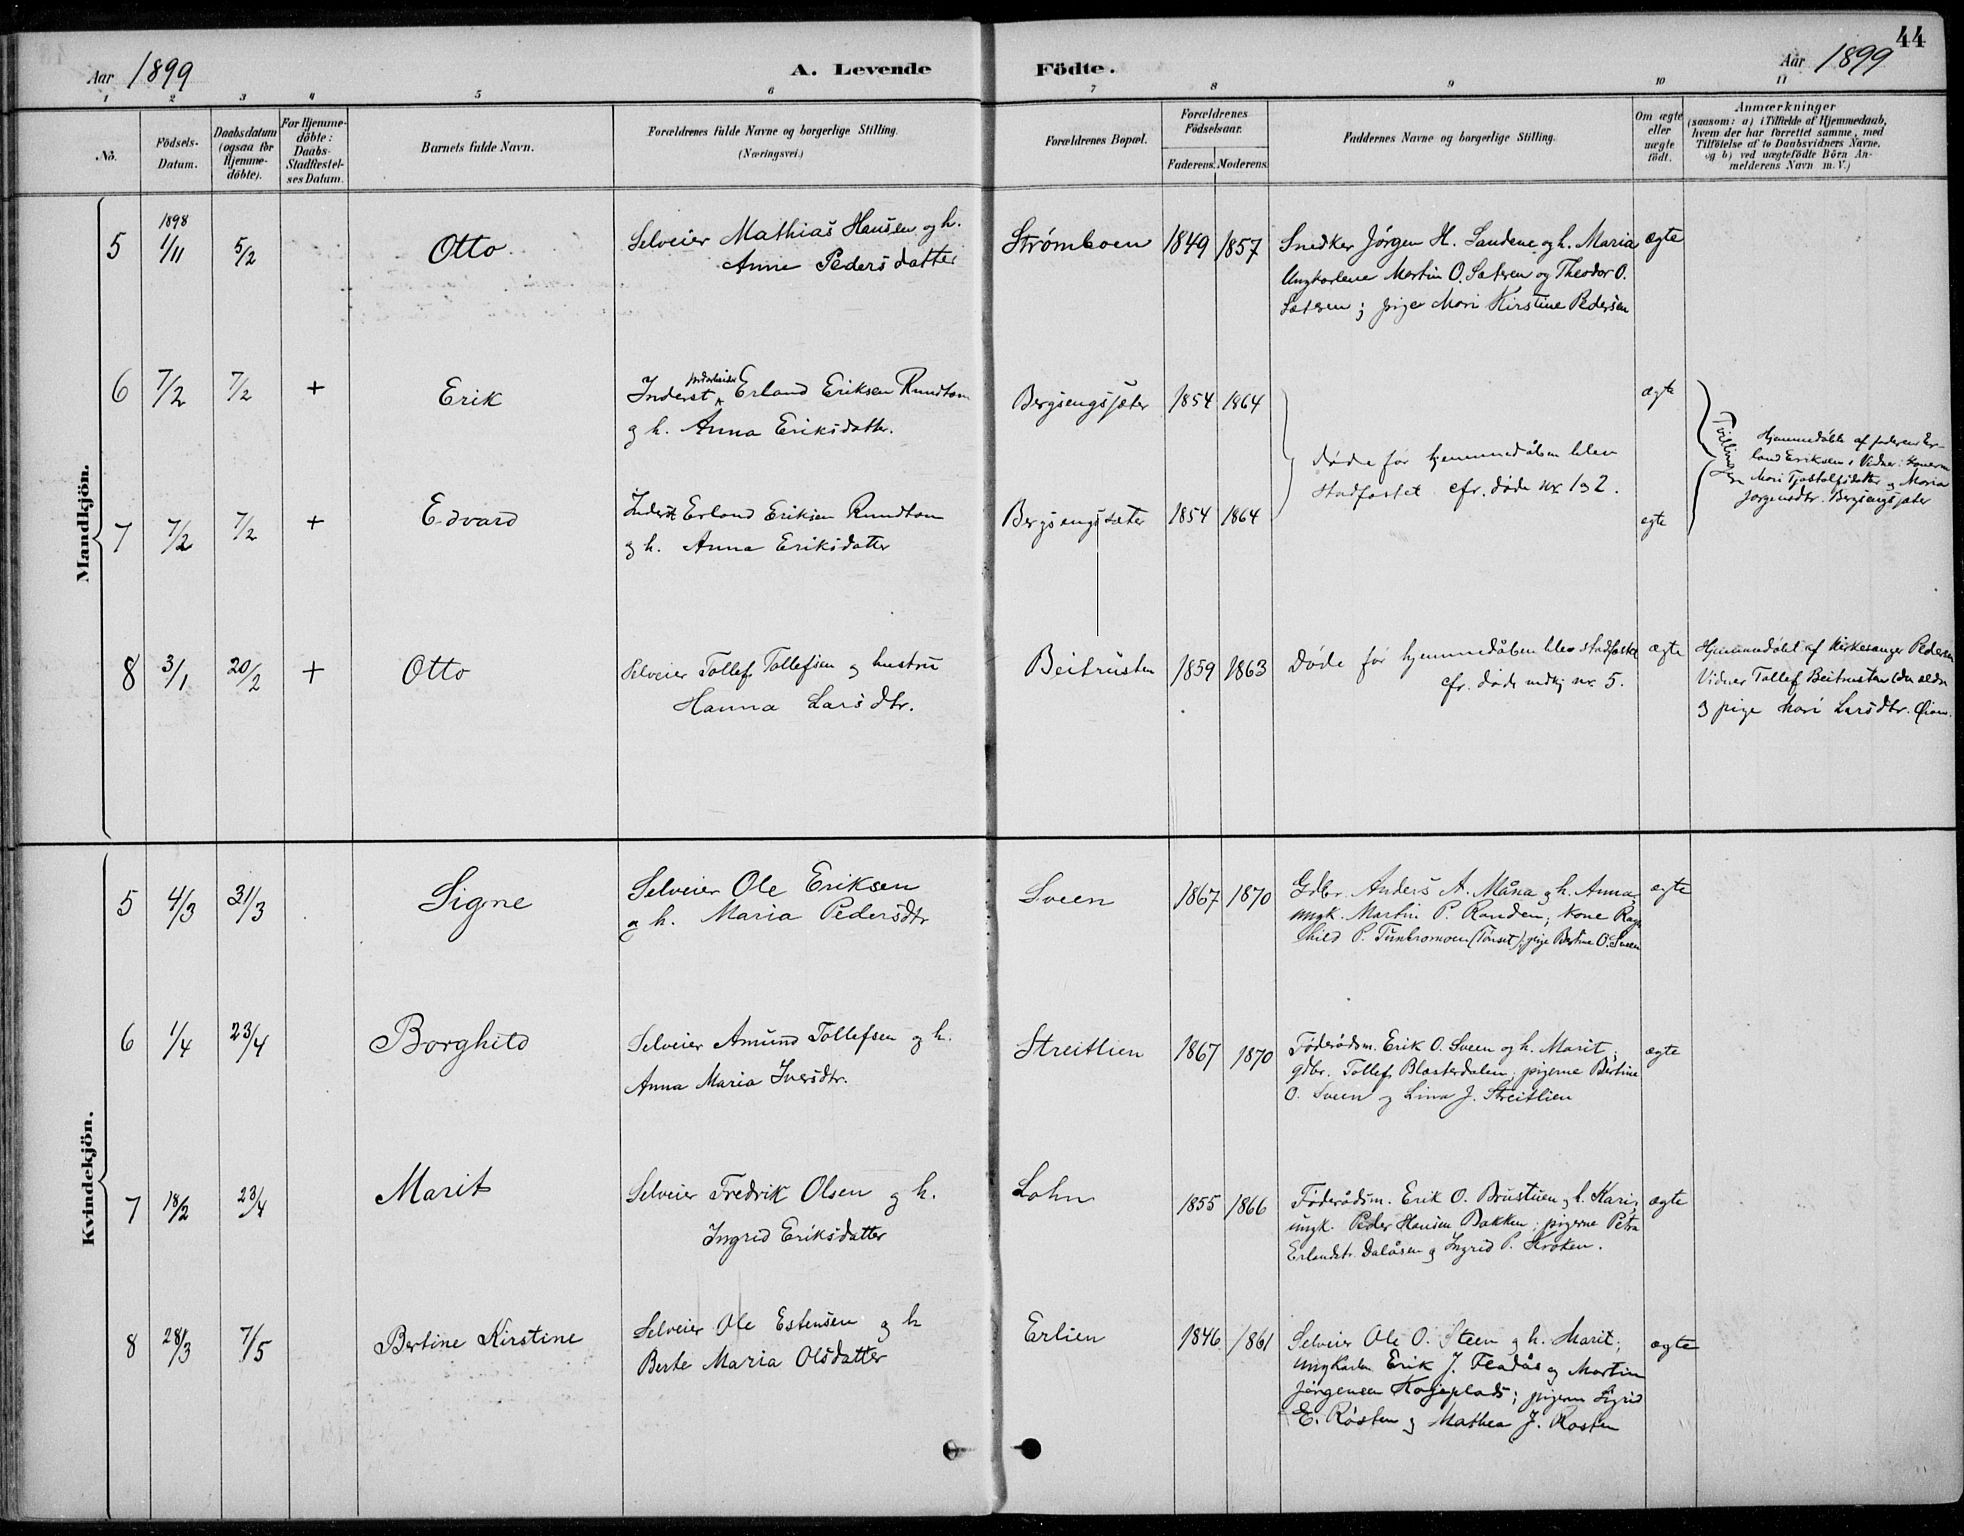 44
Aar 1899
A. Levende Födte.
Aar 1899
1 2 3 4 5 6 7 8 9 10 11
No.
Födsels-Datum.
Daabsdatum (ogsaa for Hjemme-döbte).
For Hjemme-döbte: Daabs-Stadfæstel-ses Datum.
Barnets fulde Navn.
Forældrenes fulde Navne og borgerlige Stilling.
(Næringsvei.)
Forældrenes Bopæl.
Forældrenes Födselsaar.
Faderens. Moderens.
Faddernes Navne og borgerlige Stilling.
Om ægte eller uægte födt.
Anmærkninger
(saasom: a) i Tilfælde af Hjemmedaab,
hvem der har forrettet samme, med
Tilföielse af to Daabsvidners Navne,
og b) ved uægtefödte Börn An-
melderens Navn m. V.)
Mandkjön.
5 1898 1/11 5/2 Otto
Selveier Mathias Hansen og h.
Anne Pedersdatter
Strømboen 1849 1857
Snedker Jørgen H. Sandene og h. Maria
Ungkarlene Martin O. Sæteren og Theodor O.
Sæteren; pige Mari Kirstine Pedersen
ægte
6 7/2 7/2 + Erik
Inderst Erland Eriksen Rundtom
og h. Anna Eriksdatter.
Bergsengsjæter 1854 1864
døde før hjemmedåben blev
stadfæstet cfr. døde nr. 1 og 2.
ægte
Tvillinger
Hjemmedøbte af faderen Er-
land Eriksen. Vidner: konerne
Mari Tjostolfsdatter og Maria
Jørgensdtr. Bergsengsjæter
7 7/2 7/2 + Edvard
Inderst Erland Eriksen Rundtom
og h. Anna Eriksdatter
Bergsengsæter 1854 1864
egte
8 3/1 20/2 + Otto
Selveier Tollef Tollefsen og hustru
Hanna Larsdtr.
Beitrusten 1859 1863
Døde før hjemmedåben blev stadfæstet
cfr. døde mdkj nr. 5.
ægte
Hjemmedøbt af Kirkesanger Pedersen
Vidner Tollef Beitrusten (den ældre
og pige Mari Larsdtr. Øian.
Kvindekjön.
5 4/3 31/3 Signe
Selveier Ole Eriksen
og h. Maria Pedersdtr
Sveen 1867 1870
Gdbr. Anders A. Måna og h. Anna,
ungk. Martin P. Randen; kone Ragn
hild P. Tunbromoen (Tönset); pige Bertine O. Sveen
ægte
6 1/4 23/4 Borghild
Selveier Amund Tollefsen og h.
Anna Maria Iversdtr.
Streitlien 1867 1870
Føderådsm. Erik O. Sveen og h. Marit;
gdbr. Tollef Blæsterdalen; pigerne Bertine
O. Sveen og Lina J. Streitlien
ægte
7 18/2 23/4 Marit
Selveier Fredrik Olsen og h.
Ingrid Eriksdatter
Lohn 1855 1866
Føderådsm. Erik O. Brustuen og h. Kari;
ungk. Peder Hansen Bakken; pigerne Petra
Erlandstr. Dalåsen og Ingrid P. Kroken.
ægte
8 28/3 7/5 Bertine Kirstine
Selveier Ole Estensen og h
Berte Maria Olsdatter
Erlien 1846 1861
Selveier Ole O. Steen og h. Marit;
ungkarlene Erik J. Fladås og Martin
Jörgensen Kojeplads; pigerne Sigrid
E. Rösten og Mathea J. Rosten
ægte